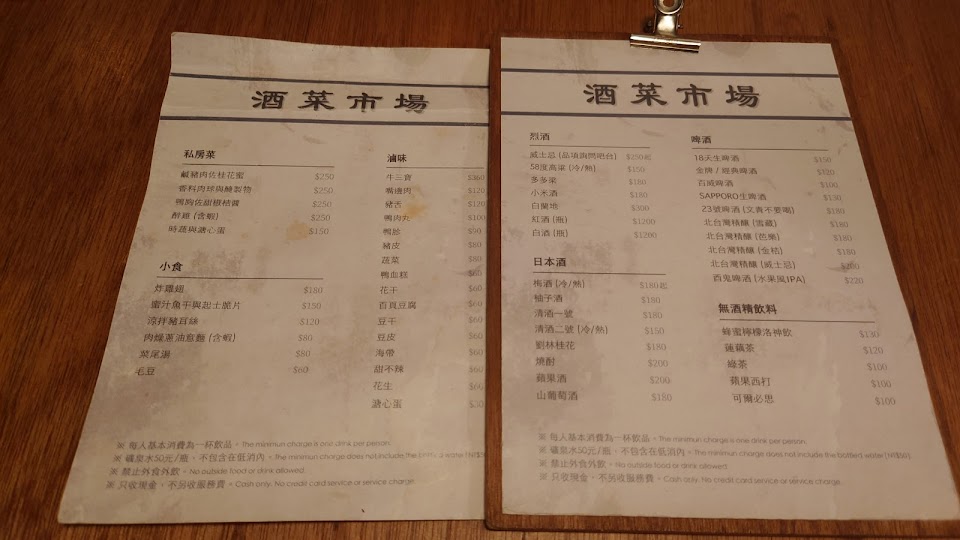 酒菜市場
私房菜
鹹豬肉佐桂花蜜 $250
香料肉球與醃製物 $250
鴨胸佐甜椒桔醬 $250
醉雞 (含蝦) $250
時蔬與溏心蛋 $150
小食
炸雞翅 $80
蜜汁魚干與起士脆片 $150
涼拌豬耳絲 $120
肉燥蔥油意麵 (含蝦) $80
菜尾湯 $80
毛豆 $60
滷味
牛三寶 $360
嘴邊肉 $120
豬舌 $120
鴨肉丸 $100
鴨胗 $90
豬皮 $80
蔬菜 $80
鴨血糕 $60
花干 $60
百頁豆腐 $60
豆干 $60
豆皮 $60
海帶 $60
甜不辣 $60
花生 $60
溏心蛋 $30
※ 每人基本消費為一杯飲品。The minimun charge is one drink per person.
※ 礦泉水50元/瓶、不包含在低消內。The minimum charge does not include the bottled water (NT$50).
※ 禁止外食外飲。No outside food or drink allowed.
※ 只收現金、不另收服務費。Cash only. No credit card service or service charge.
酒菜市場
烈酒
威士忌 (品項詢問吧台) $250起
58度高粱 (冷/熱) $150
多多梁 $180
小米酒 $180
白蘭地 $300
紅酒 (瓶) $1200
白酒 (瓶) $1200
日本酒
梅酒 (冷/熱) $180起
柚子酒 $180
清酒一號 $180
清酒二號 (冷/熱) $150
劉林桂花 $180
燒酎 $200
蘋果酒 $200
山葡萄酒 $180
啤酒
18天生啤酒 $150
金牌 / 經典啤酒 $120
百威啤酒 $100
SAPPORO生啤酒 $130
23號啤酒 (文青不要喝) $180
北台灣精釀 (雪藏) $180
北台灣精釀 (芭樂) $180
北台灣精釀 (金桔) $180
北台灣精釀 (威士忌) $280
酉鬼啤酒 (水果風IPA) $220
無酒精飲料
蜂蜜檸檬洛神飲 $130
蓮藕茶 $120
綠茶 $100
蘋果西打 $100
可爾必思 $100
※ 每人基本消費為一杯飲品。The minimun charge is one drink per person.
※ 礦泉水50元/瓶、不包含在低消內。The minimum charge does not include the bottled water (NT$50).
※ 禁止外食外飲。No outside food or drink allowed.
※ 只收現金、不另收服務費。Cash only. No credit card service or service charge.